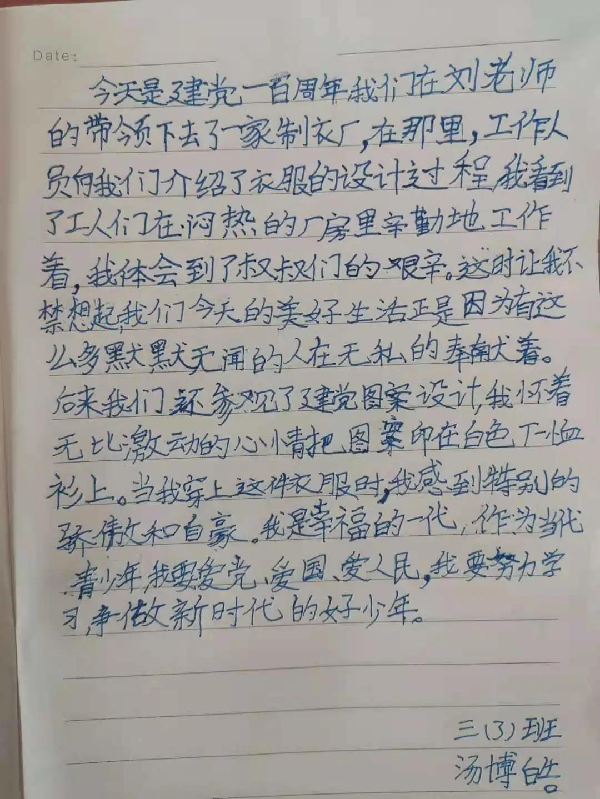 Date:
今天是建党一百周年,我们在刘老师
的带领下去了一家制衣厂,在那里,工作人
员向我们介绍了衣服的设计过程,我看到
了工人们在闷热的厂房里辛勤地工作
着,我体会到了叔叔们的艰辛。这时让我不
禁想起,我们今天的美好生活正是因为有这
么多默默无闻的人在无私的奉献着。
后来我们还参观了建党图案设计,我怀着
无比激动的心情把图案印在白色T恤
衫上。当我穿上这件衣服时,我感到特别的
骄傲和自豪。我是幸福的一代,作为当代
青少年,我要爱党、爱国、爱人民,我要努力学
习,争做新时代的好少年。
三(3)班
汤博皓。